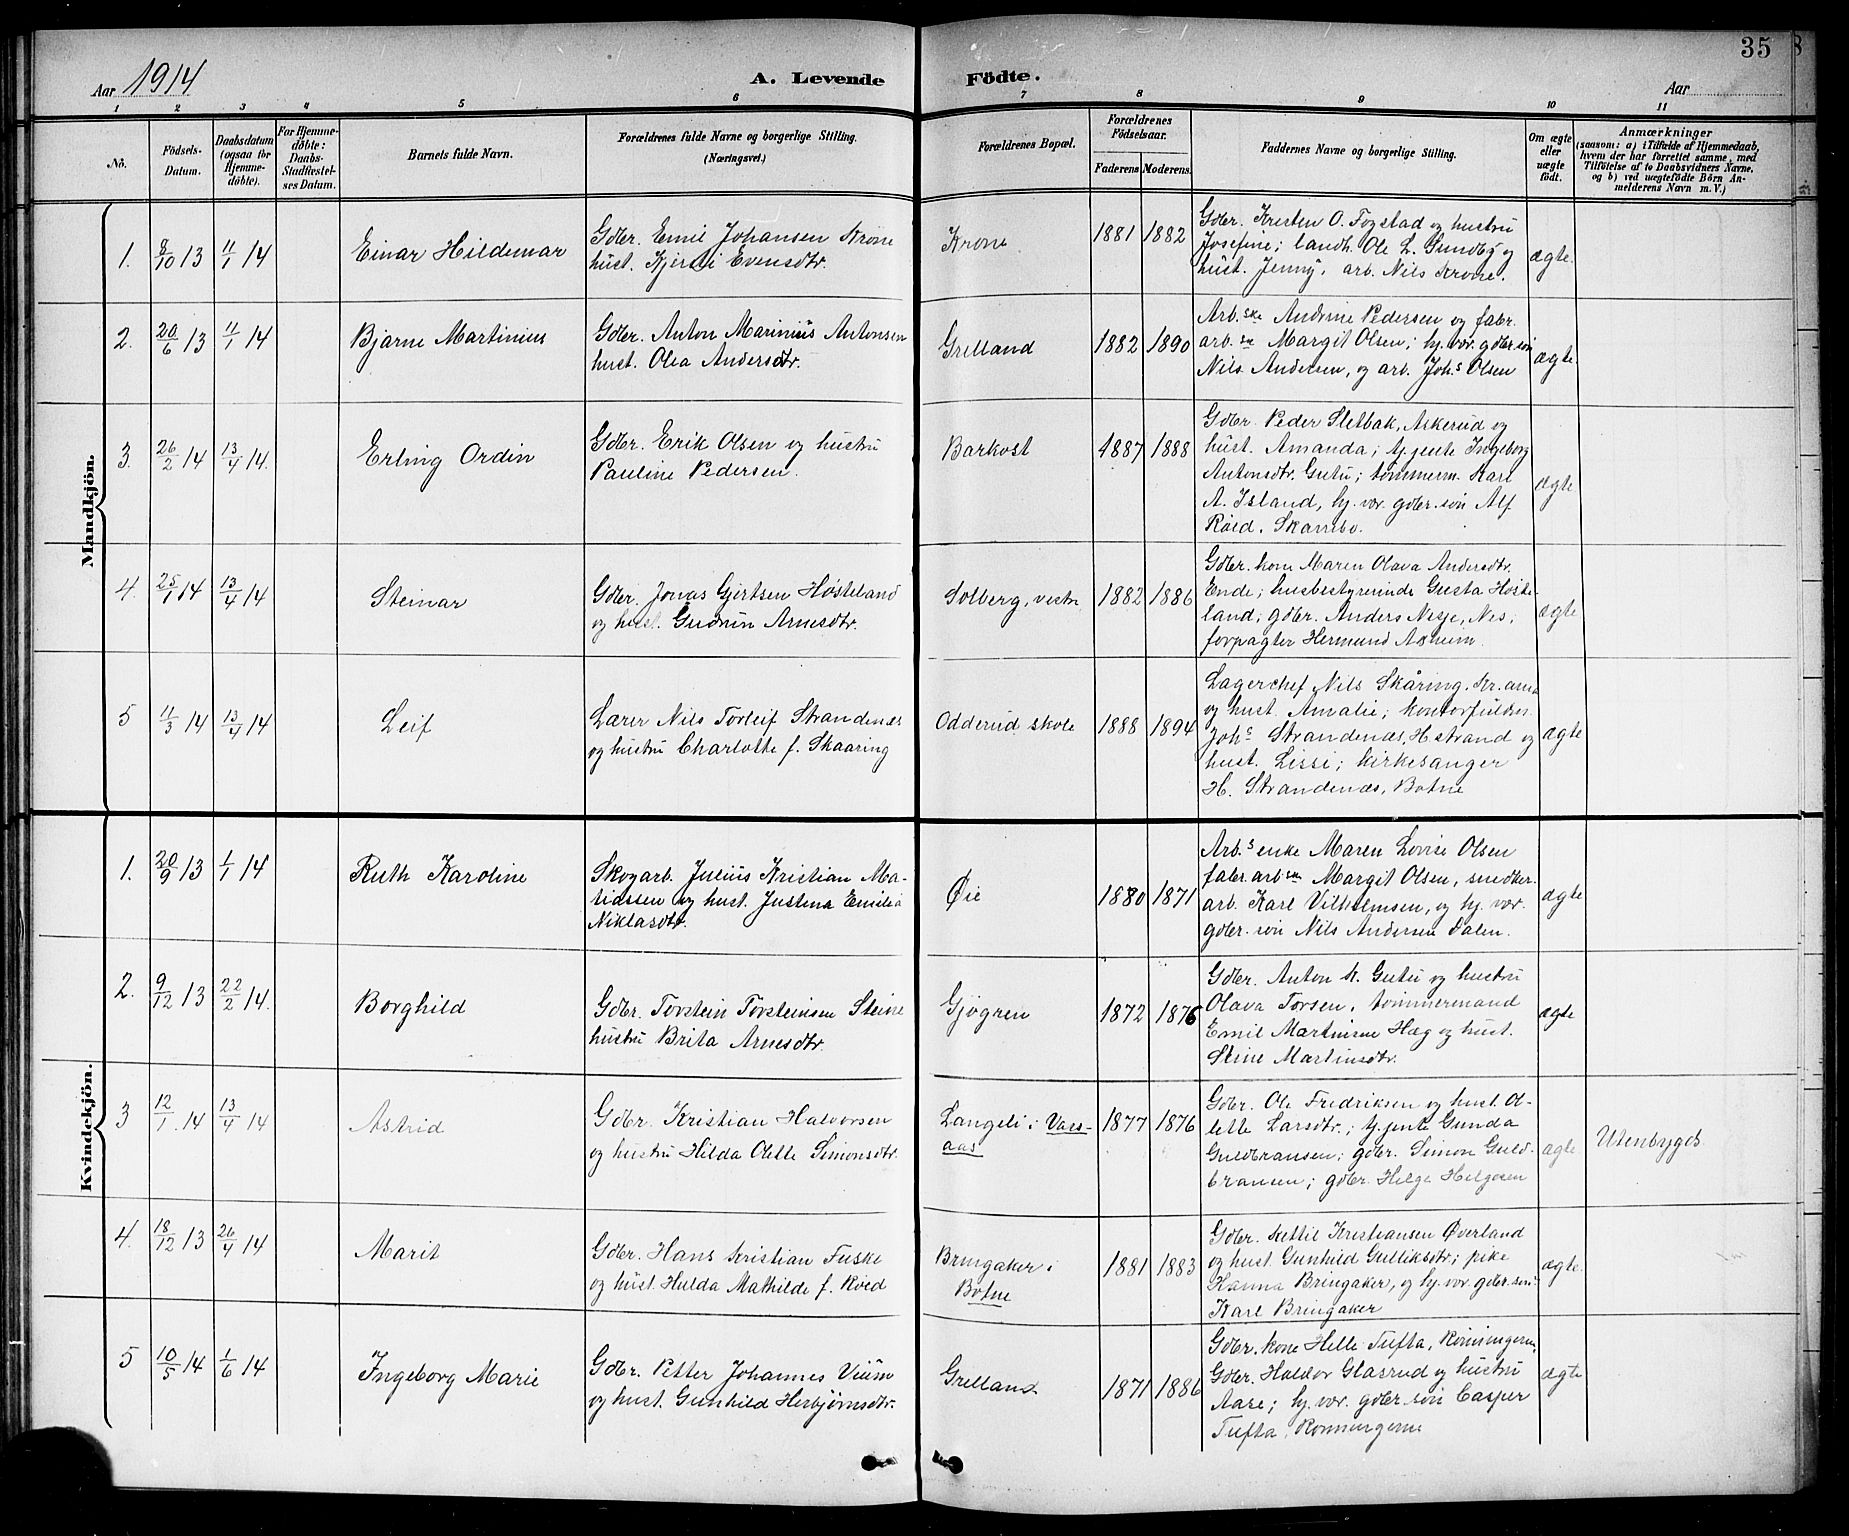 35
Aar 1914
A. Levende
Födte.
Aar
1 2 3 4 5 6 7 8 9 10 11
No.
Födsels-
Datum.
Daabsdatum
(ogsaa for
Hjemme-
döbte).
For Hjemme-
döbte:
Daabs-
Stadfæstel-
ses Datum.
Barnets fulde Navn.
Forældrenes fulde Navne og borgerlige Stilling.
(Næringsvei.)
Forældrenes Bopæl.
Forældrenes
Födselsaar.
Faderens Moderens
Faddernes Navne og borgerlige Stilling.
Om ægte
eller
uægte
födt.
Anmærkninger
(saasom: a) i Tilfælde af Hjemmedaab,
hvem der har forrettet samme, med
Tilföielse af to Daabsvidners Navne,
og b) ved uægtefödte Börn An-
melderens Navn m. V.)
Mandkjön.
1. 8/10 13 11/1 14
Einar Hildemar
Gdbr. Emil Johansen Krone
hust. Kjersti Evensdtr.
Krone
1881 1882
Gdbr. Kristen O. Fogstad og hustru
Josefine; landh. Ole L. Sundby og
hust. Jenny, arb. Nils Krone.
ægte.
2. 20/6 13 11/1 14
Bjarne Martinius
Gdbr. Anton Marinius Antonsen
hust. Olea Andersdtr.
Grelland
1882 1890
Arb.ske Andrine Pedersen og fabr.
arb.ske Margit Olsen; hj. vær. gdbr. søn
Nils Andersen, og arb. Joh.s Olsen
ægte.
3. 26/2 14 13/4 14.
Erling Ordin
Gdbr. Erik Olsen og hustru
Pauline Pedersen.
Barkost
1887 1888
Gdbr. Peder Sletbak, Askerud og
hust. Amanda; tj. jente Ingeborg
Antonsdtr. Gutu; tømmerm. Karl
A. Island, hj. vær. gdbr. søn Alf
Røed, Skambo.
ægte
4. 25/1 14 13/4 14
Steinar
Gdbr. Jonas Gjertsen Høsteland
og hust. Gudrun Arnesdtr.
Solberg, vestre
1882 1886
Gdbr. kone Maren Olava Andersdtr.
Ende; husbestyrerinde Gusta Høste-
land; gdbr. Anders Nesje, Nes;
forpagter Hermund Asheim.
ægte
5 11/3 14 13/4 14
Leif
Lærer Nils Torleif Strandenæs
og hustru Charlotte f. Skaaring
Odderud skole
1888 1894
Lagerchef Nils Skåring, Kr.ania
og hust. Amalie; kontorfuldm.
Joh.s Strandenæs, Hstrand og
hust. Lissi; kirkesanger
H. Strandenæs, Botne
ægte
Kvindekjön.
1. 20/9 13 1/1 14
Ruth Karoline
Skogarb. Julius Kristian Ma-
tidssen og hust. Justina Emilie
Niklasdtr.
Øie
1880 1871
Arb.s enke Maren Lovise Olsen
fabr. arb.ske Margit Olsen, snedker-
arb. Karl Vilhelmsen, og hj. vær.
gdbr. søn Nils Andersen Dalen.
ægte
2. 9/12 13 22/2 14.
Borghild
Gdbr. Torstein Torsteinsen Steine
hustru Brita Arnesdtr.
Gjøgren
1872 1876
Gdbr. Anton K. Gutu og hustru
Olava Torsen, tømmermand
Emil Martinsen Hæg og hust.
Stine Martinsdtr.
ægte
3 12/1 14 13/4 14
Astrid
Gdbr. Kristian Halvorsen
og hustru Hilda Olette Simonsdtr.
Langeli i Vaas-
aas
1877 1876
Gdbr. Ole Fredriksen og hust. O-
lette Larsdtr.; tj. jente Gunda
Guldbransen; gdbr. Simon Guld-
bransen; gdbr. Helge Helgesen
ægte
Utenbygds
4. 18/12 13 26/4 14
Marit
Gdbr. Hans Kristian Fuske
og hust. Hulda Mathilde f. Røed
Bringaker i
Botne
1881 1883
Gdbr. Kettil Kristiansen Øverland
og hust. Gunhild Gulliksdtr; pike
Hanna Bringaker, og hj. vær. gdbr. søn
Karl Bringaker
ægte.
5 10/5 14 1/6 14
Ingeborg Marie
Gdbr. Petter Johannes Vium
og hust. Gunhild Herbjørnsdtr.
Grelland
1871 1886
Gdbr. kone Helle Tufta, Rønningerne,
Gdbr. Haldor Glasrud og hustru
Aase; hj. vær. gdbr. søn Casper
Tufta, Rønningerne
ægte